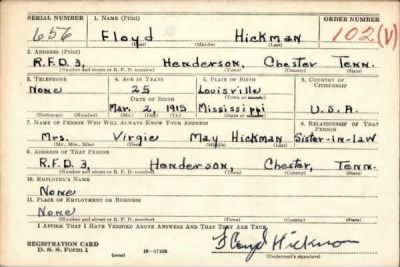 SERIAL NUMBER 1. NAME (Print) ORDER NUMBER
656 Floyd Hickman 102(V)
(First) (Middle) (Last)
2. ADDRESS (Print)
R.F.D. 3, Henderson, Chester Tenn.
(Number and street or R. F. D. number) (Town) (County) (State)
3. TELEPHONE 4. AGE IN YEARS 5. PLACE OF BIRTH 6. COUNTRY OF CITIZENSHIP
None 25 Louisville
DATE OF BIRTH (Town or county)
Mar. 2, 1915 Mississippi U.S.A.
(Exchange) (Number) (Mo.) (Day) (Yr.) (State or country)
7. NAME OF PERSON WHO WILL ALWAYS KNOW YOUR ADDRESS 8. RELATIONSHIP OF THAT PERSON
Mrs. Virgie May Hickman Sister-in-law
(Mr., Mrs., Miss) (First) (Middle) (Last)
9. ADDRESS OF THAT PERSON
R.F.D. 3, Henderson, Chester, Tenn.
(Number and street or R. F. D. number) (Town) (County) (State)
10. EMPLOYER'S NAME
None
11. PLACE OF EMPLOYMENT OR BUSINESS
None
(Number and street or R. F. D. number) (Town) (County) (State)
I AFFIRM THAT I HAVE VERIFIED ABOVE ANSWERS AND THAT THEY ARE TRUE.
REGISTRATION CARD
D. S. S. Form 1 16-17105 Floyd Hickman
(Registrant's signature)